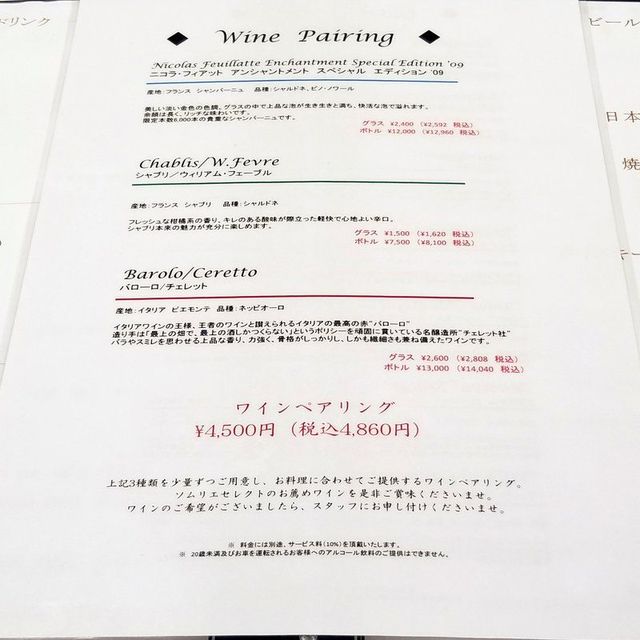 ドリンク
ビール
日本
焼
◆ Wine Pairing ◆
Nicolas Feuillatte Enchantment Special Edition '09
ニコラ・フィアット アンシャントメント スペシャル エディション '09
産地：フランス シャンパーニュ 品種：シャルドネ、ピノ・ノワール
美しい淡い金色の色調、グラスの中で上品な泡が生き生きと満ち、快活な泡で溢れます。
余韻は長く、リッチな味わいです。
限定本数6,000本の貴重なシャンパーニュです。
グラス ¥2,400 （¥2,592 税込）
ボトル ¥12,000 （¥12,960 税込）
Chablis/W.Fevre
シャブリ／ウィリアム・フェーブル
産地：フランス シャブリ 品種：シャルドネ
フレッシュな柑橘系の香り、キレのある酸味が際立った軽快で心地よい辛口。
シャブリ本来の魅力が充分に楽しめます。
グラス ¥1,500 （¥1,620 税込）
ボトル ¥7,500 （¥8,100 税込）
Barolo/Ceretto
バローロ／チェレット
産地：イタリア ピエモンテ 品種：ネッビオーロ
イタリアワインの王様、王者のワインと讃えられるイタリアの最高の赤"バローロ"
造り手は「最上の畑で、最上の酒しかつくらない」というポリシーを頑固に貫いている名醸造所"チェレット社"
バラやスミレを思わせる上品な香り、力強く、骨格がしっかりし、しかも繊細さも兼ね備えたワインです。
グラス ¥2,600 （¥2,808 税込）
ボトル ¥13,000 （¥14,040 税込）
ワインペアリング
¥4,500円（税込4,860円）
上記3種類を少量ずつご用意し、お料理に合わせてご提供するワインペアリング。
ソムリエセレクトのお薦めワインを是非ご賞味くださいませ。
ワインのご希望がございましたら、スタッフにお申し付けくださいませ。
※ 料金には別途、サービス料（10％）を頂戴いたします。
※ 20歳未満及びお車を運転されるお客様へのアルコール飲料のご提供はできません。